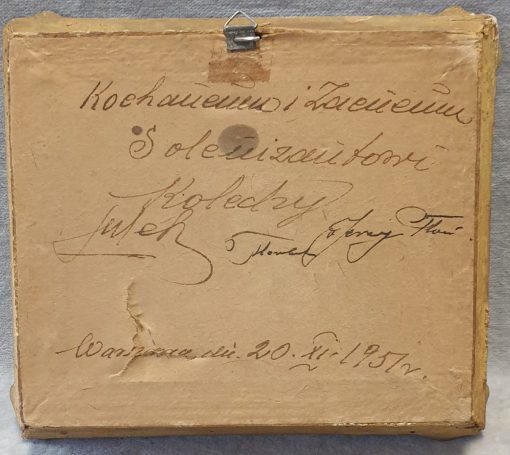 Kochanemu i Zacnemu
Solenizantowi
Koledzy
Julek
Warszawa, dn. 20. XI. 1951 r.